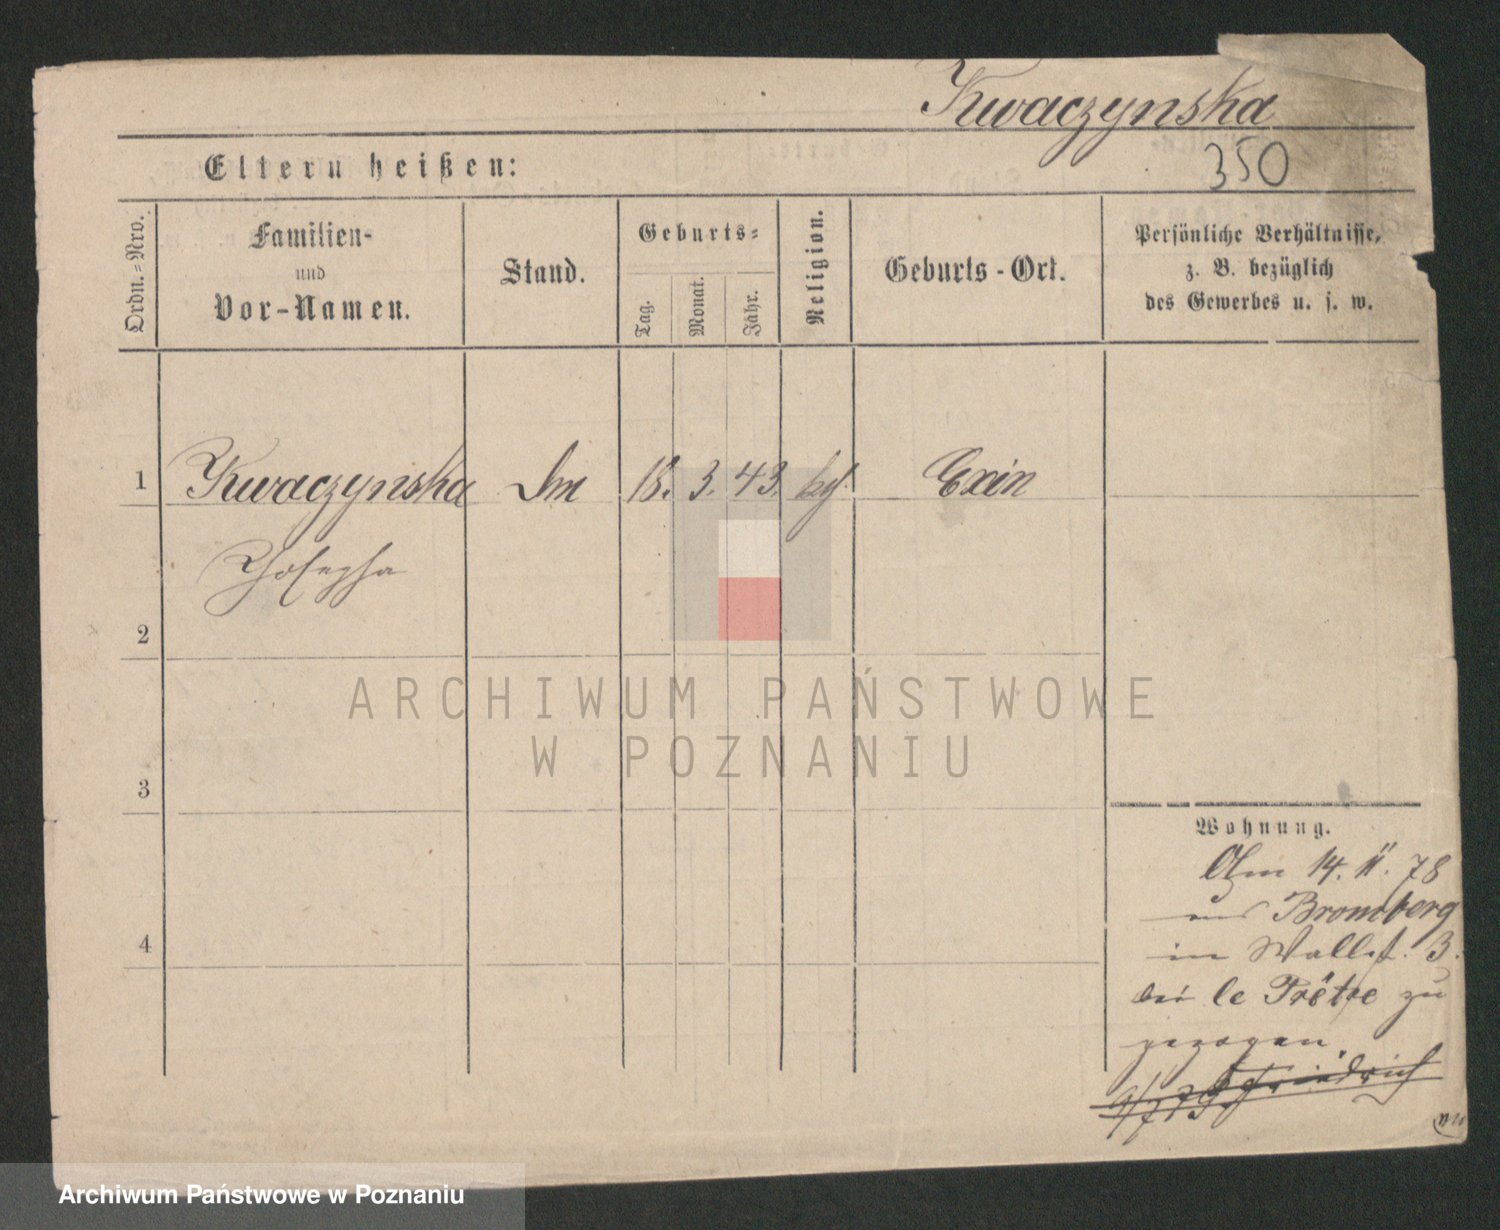 Kwaczynska
350
Eltern heißen:
Ordn.-Nro.
Familien-
und
Vor-Namen.
Stand.
Geburts-
Tag.
Monat.
Jahr.
Religion.
Geburts-Ort.
Persönliche Verhältnisse,
z. B. bezüglich
des Gewerbes u. s. w.
1 Kwaczynska 18. 3. 43. Exin
Josepha
2
3
4
ARCHIWUM PAŃSTWOWE
W POZNANIU
Wohnung.
Am 14. 11. 78
aus Bromberg
in Wallst. 3.
bei le Prêtre zu
gezogen.
Friedrich
Archiwum Państwowe w Poznaniu